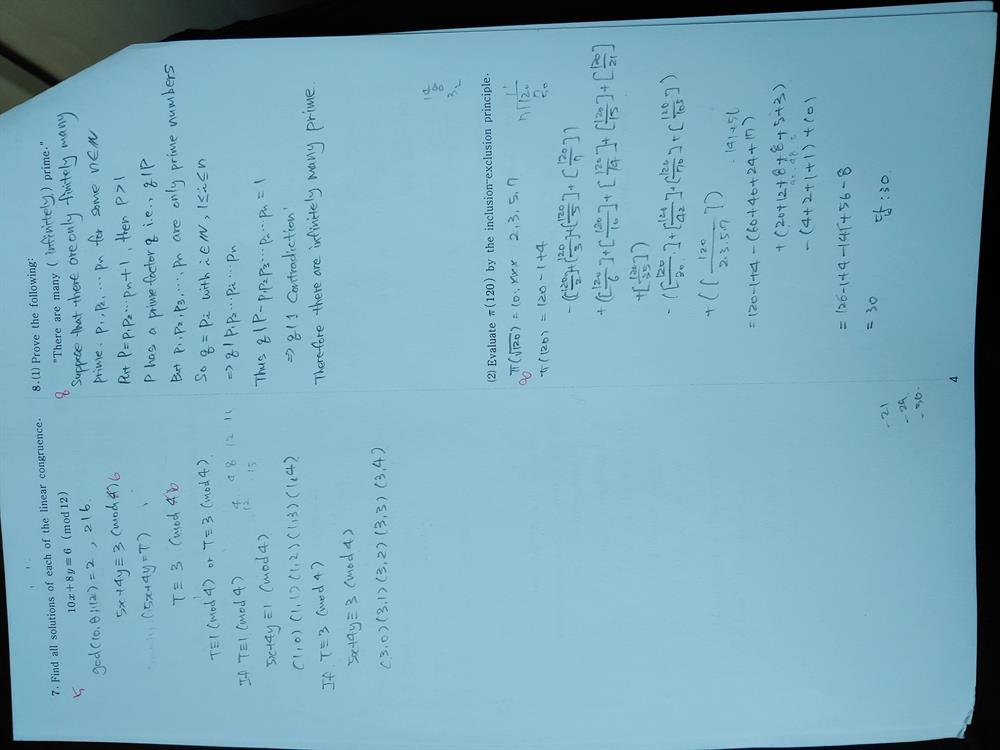 7. Find all solutions of each of the linear congruence.
10x+8y≡6 (mod 12)
5
gcd(10,8,12)=2, 2|6.
5x+4y≡3 (mod 4)6
(5x+4y=T)
T≡3 (mod 4)6
T≡1 (mod 4) or T≡3 (mod 4).
If T≡1 (mod 4)
4 4 8 12 16
12 15
5x+4y≡1 (mod 4)
(1,0) (1,1) (1,2) (1,3) (1,4)
If T≡3 (mod 4)
5x+4y≡3 (mod 4)
(3,0) (3,1) (3,2) (3,3) (3,4)
-21
-24
-30.
8. (1) Prove the following:
"There are many (infinitely) prime."
8
Suppose that there are only finitely many
prime. p₁, p₂, ... pₙ for some n∈N
Put P=p₁p₂...pₙ+1, then P>1
P has a prime factor q i.e., q|P
But p₁, p₂, p₃, ... pₙ are only prime numbers
So q=pᵢ with i∈N, 1≤i≤n
⇒ q|p₁p₂...pₙ
Thus q|P-p₁p₂p₃...pₙ=1
⇒ q|1 Contradiction
Therefore there are infinitely many prime.
(2) Evaluate π(120) by the inclusion-exclusion principle.
8
π(√120)=10.xxx 2, 3, 5, 7
π(120)=120-1+4
-([120/2]+[120/3]+[120/5]+[120/7])
+([120/6]+[120/10]+[120/14]+[120/15]+[120/21]
+[120/35])
-([120/30]+[120/42]+[120/70]+[120/105])
+([120/2·3·5·7])
=120-1+4-(60+40+24+17)
+(20+12+8+8+5+3)
-(4+2+1+1)+(0)
=120-1+4-141+56-8
=30
답:30
4